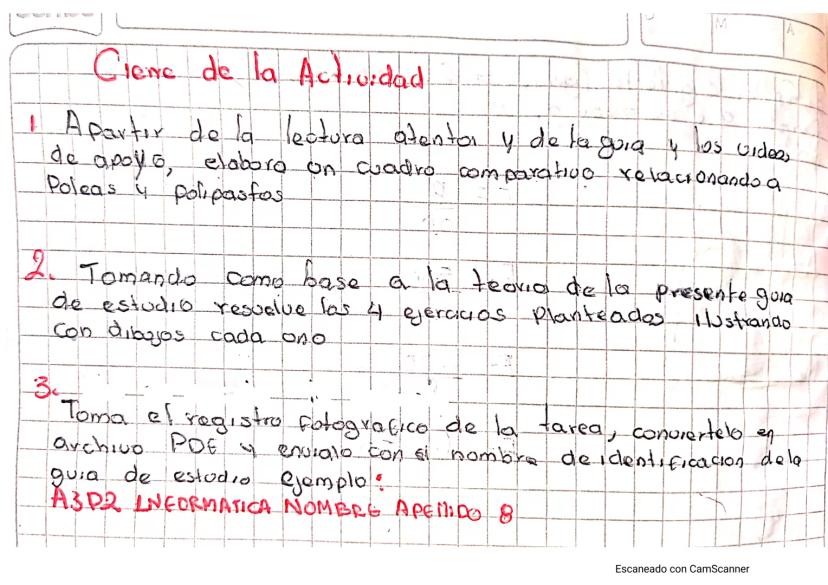 M
A
Cierre de la Actividad
1 Apartir de la lectura atenta y de la guia y los videos
de apoyo, elabora un cuadro comparativo relacionando a
Poleas y polipastos
2. Tomando como base a la teoria de la presente guia
de estudio resuelve los 4 ejercicios planteados ilustrando
con dibujos cada uno
3.
Toma el registro fotografico de la tarea, conviertelo en
archivo PDF y envialo con el nombre de identificacion dela
guia de estudio ejemplo:
A3P2 INFORMATICA NOMBRE APELLIDO 8
Escaneado con CamScanner